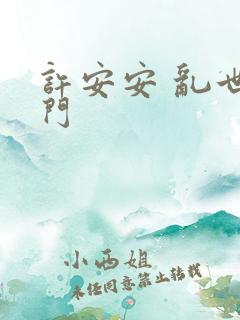 許安安 亂世
門
小西姐
未经同意禁止转载